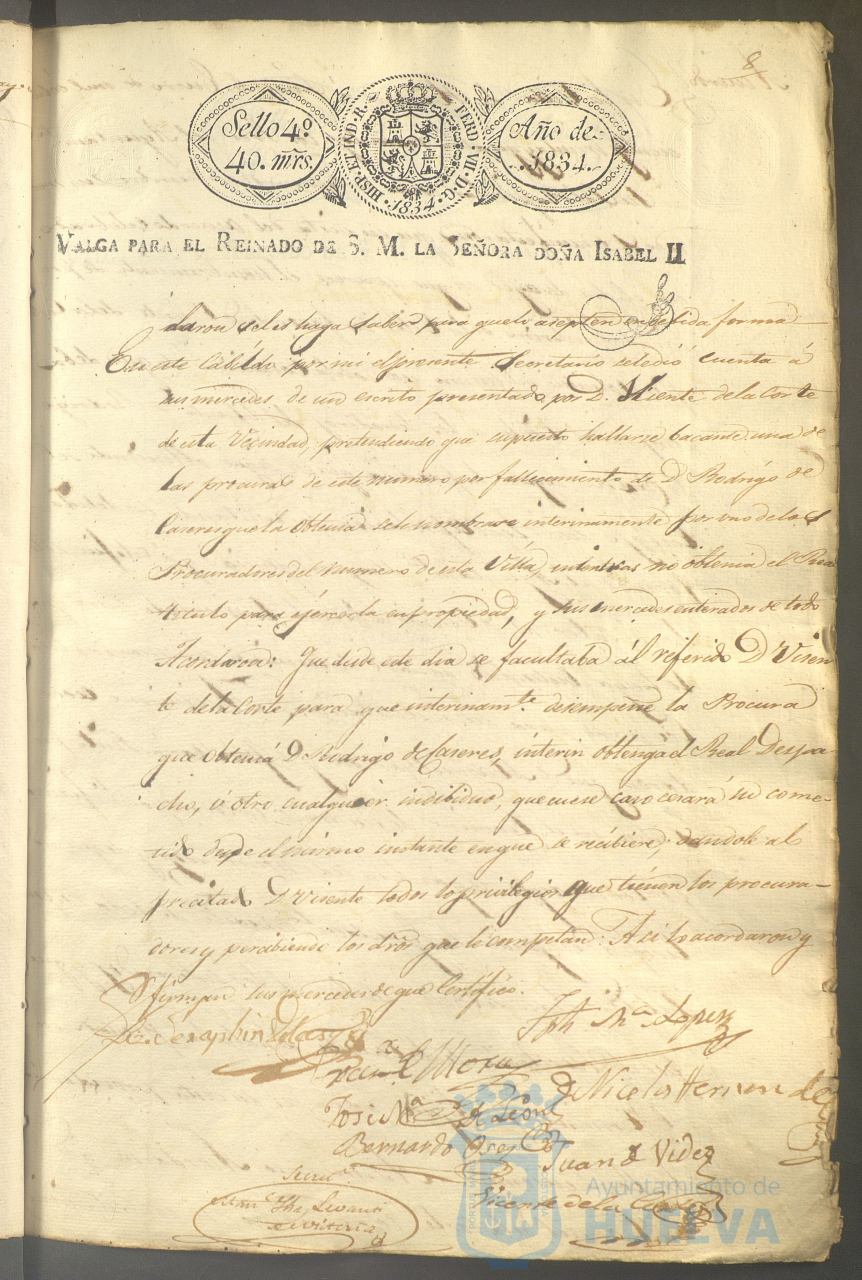 8
Sello 4º
40. mrs.
HISP. ET IND. R. FERD. VII. D. G. 1834
Año de
1834.
VALGA PARA EL REINADO DE S. M. LA SEÑORA DOÑA ISABEL II
daron se les haga saber para que lo asepten en devida forma
En este Cabildo por mi el presente Secretario se le dió cuenta á
sus mercedes de un escrito presentado por D. Visente de la Corte
de esta Vecindad, pretendiendo que supuesto hallarse bacante una de
las procuras de este numero por fallecimiento de D Rodrigo de
Caseres que la obtenia se le nombrase interinamente por uno de los
Procuradores del numero de esta Villa, interin no obtenia el Real
titulo para ejercerla en propiedad, y sus mercedes enterados de todo
Acordaron: Que desde este dia se facultaba ál referido D Visen
te de la Corte para que interinamte. desempeñe la Procura
que obtenia D Rodrigo de Caseres, interin obtenga el Real Despa
cho, ó otro cualquier individuo, que en ese caso cesará su come
tido desde el mismo instante en que se recibiere; dandole al
precitado D Visente todos los privilegios que tienen los procura-
dores y percibiendo los dros que le competan: Asi lo acordaron y
firman sus mercedes de que Certifico.
Seraphin
Jph Ma Lopez
Mora
D Nicolas Hernandez
Jose Ma de Leon
Bernardo
Juan de Vides
Visente de la Corte
Ayuntamiento de
HUELVA